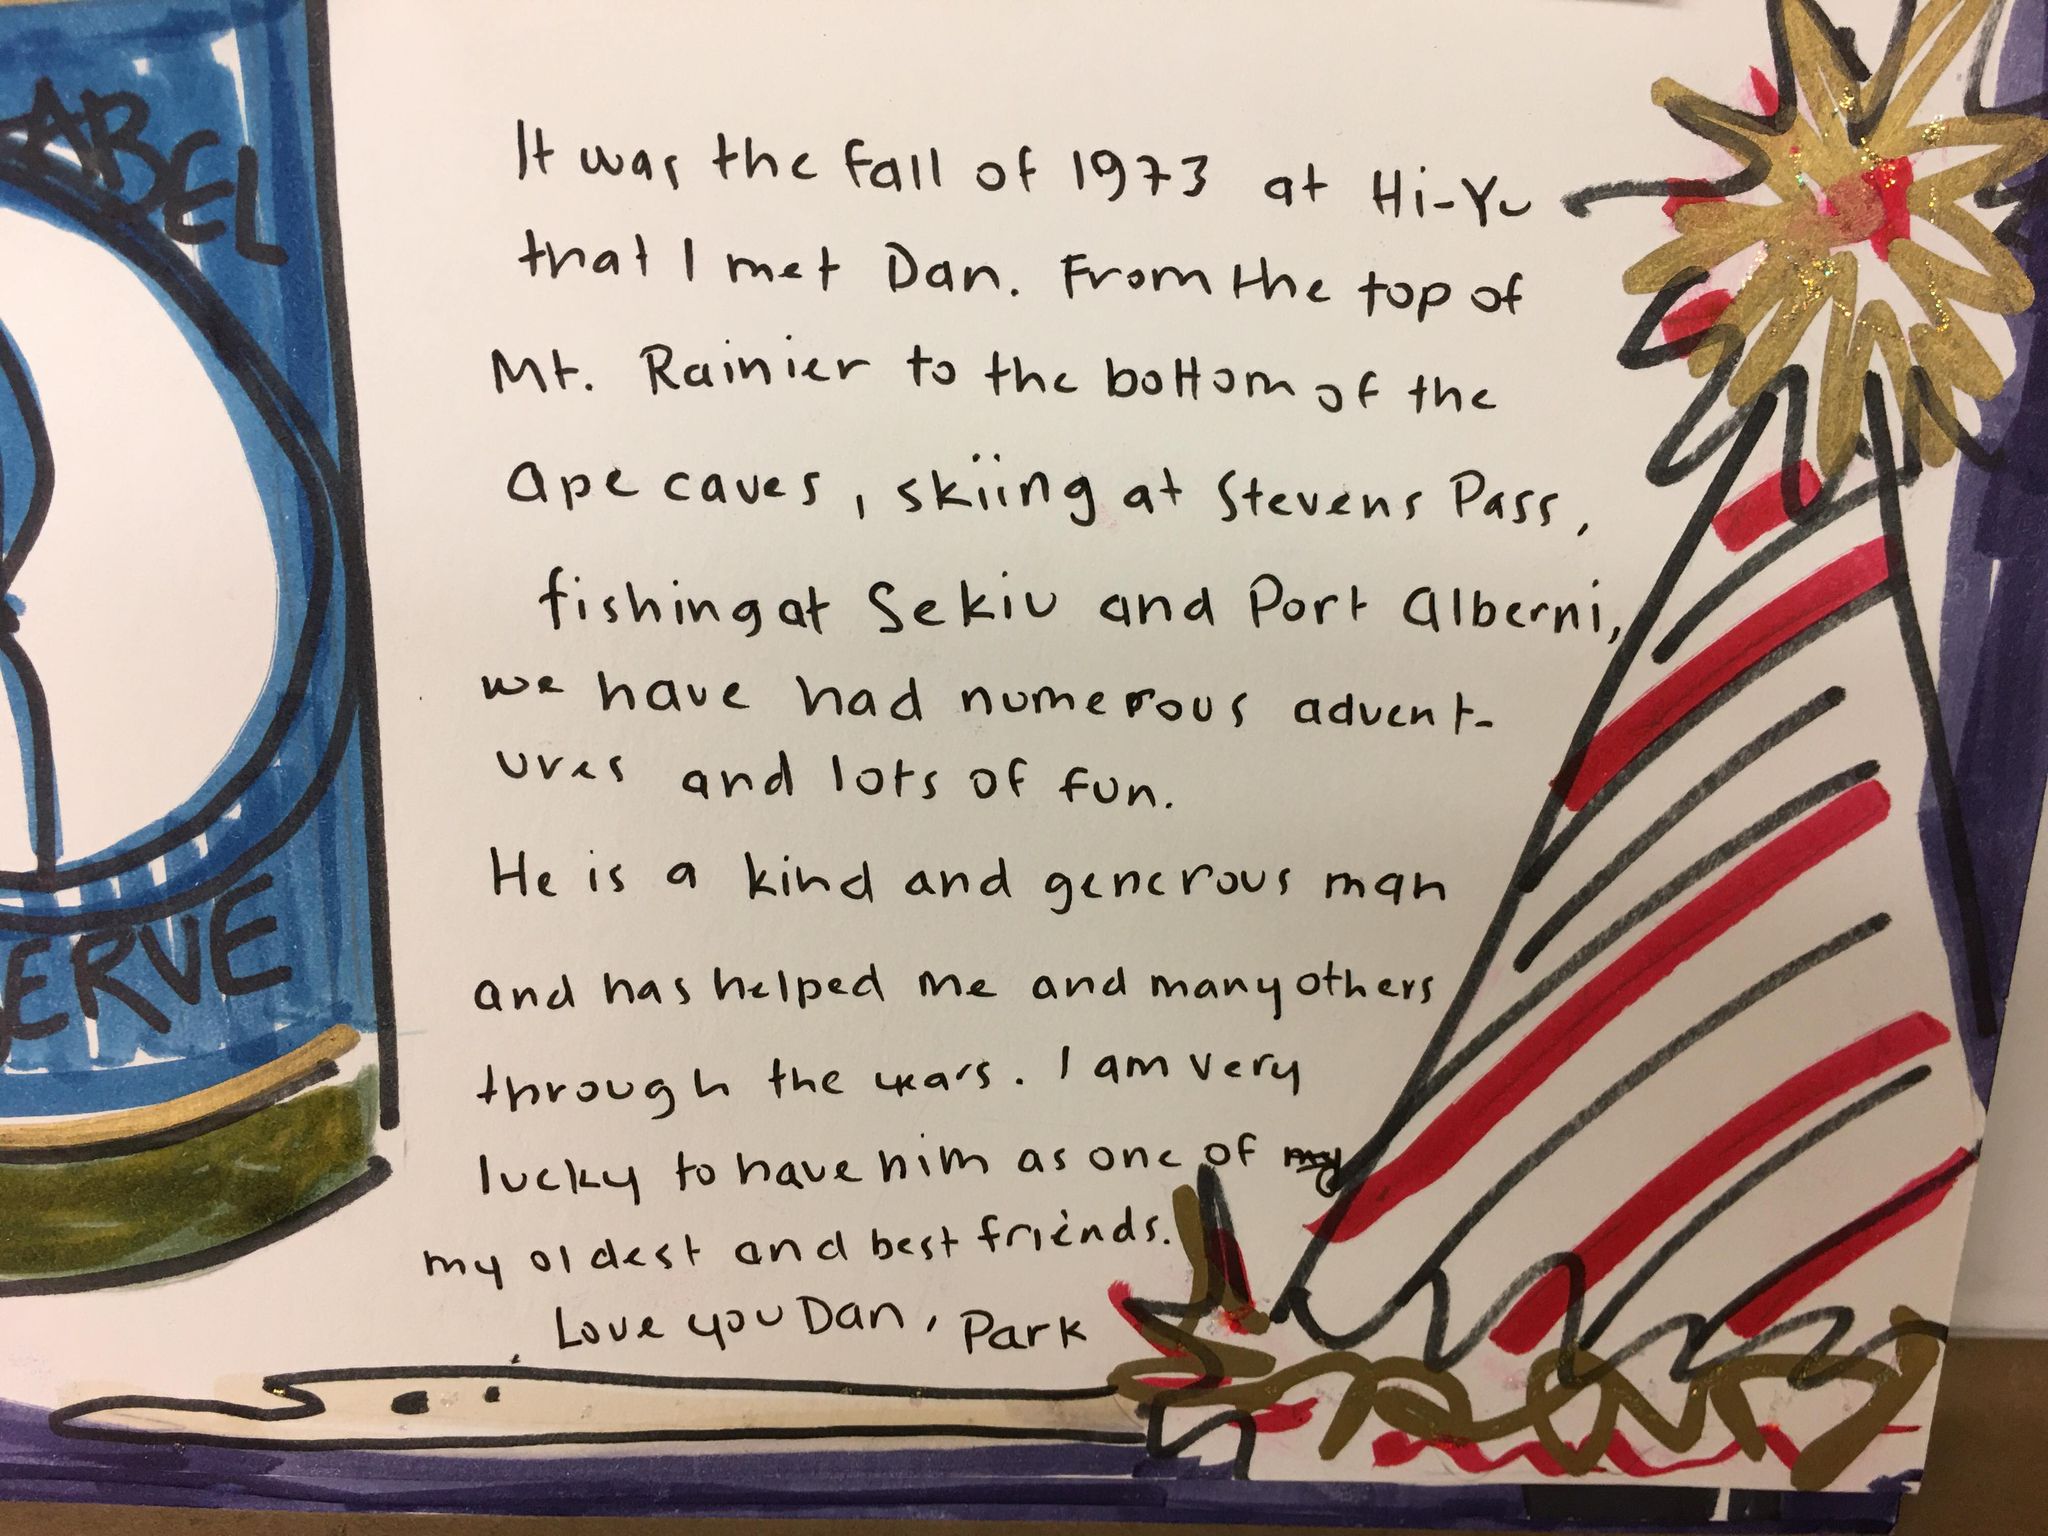 ABEL
ERVE
It was the fall of 1973 at Hi-Yu
that I met Dan. From the top of
Mt. Rainier to the bottom of the
ape caves, skiing at Stevens Pass,
fishing at Sekiu and Port Alberni,
we have had numerous advent-
ures and lots of fun.
He is a kind and generous man
and has helped me and many others
through the years. I am very
lucky to have him as one of my
my oldest and best friends.
Love you Dan, Park